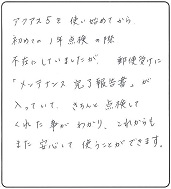 アクアス5を使い始めてから
初めての1年点検の際
不在にしていましたが、郵便受けに
「メンテナンス完了報告書」が
入っていて、きちんと点検して
くれた事がわかり、これからも
また安心して使うことができます。